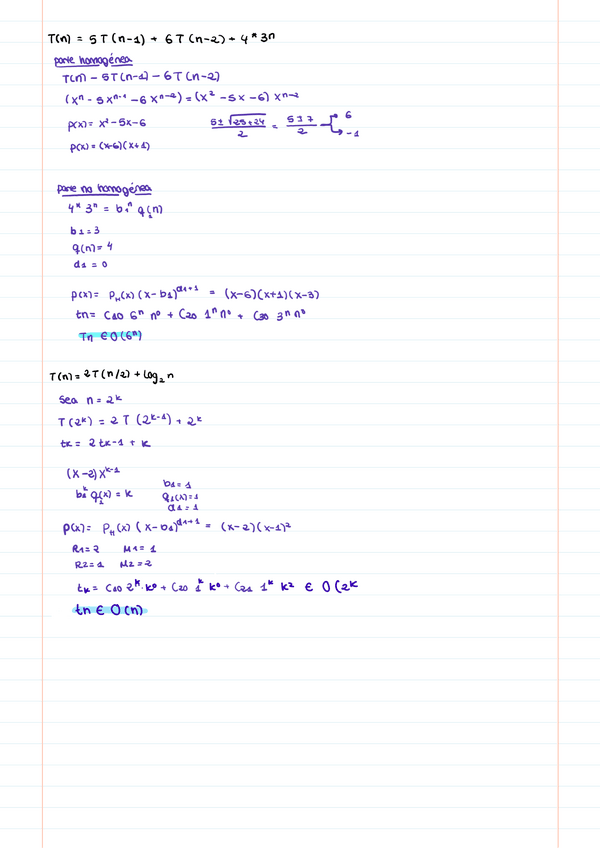 T(n) = 5T(n-1) + 6T(n-2) + 4 * 3^n
parte homogénea
T(n) - 5T(n-1) - 6T(n-2)
(x^n - 5x^{n-1} - 6x^{n-2}) = (x^2 - 5x - 6) x^{n-2}
p(x) = x^2 - 5x - 6    (5 ± √(25+24))/2 = (5 ± 7)/2 → 6, → -1
p(x) = (x-6)(x+1)
parte no homogénea
4 * 3^n = b_1^n q_1(n)
b1 = 3
q(n) = 4
d1 = 0
p(x) = P_H(x) (x - b1)^{d1+1} = (x-6)(x+1)(x-3)
tn = C10 6^n n^0 + C20 1^n n^0 + C30 3^n n^0
Tn ∈ O(6^n)
T(n) = 2T(n/2) + log_2 n
Sea n = 2^k
T(2^k) = 2T(2^{k-1}) + 2^k
tk = 2tk-1 + k
(x-2) x^{k-1}
b_1^k q_1(x) = k    b1 = 1
q_1(x) = 1
d1 = 1
p(x) = P_H(x) (x - b1)^{d1+1} = (x-2)(x-1)^2
R1 = 2    M1 = 1
R2 = 1    M2 = 2
tk = C10 2^k · k^0 + C20 1^k k^0 + C21 1^k k^2 ∈ O(2^k
tn ∈ O(n)